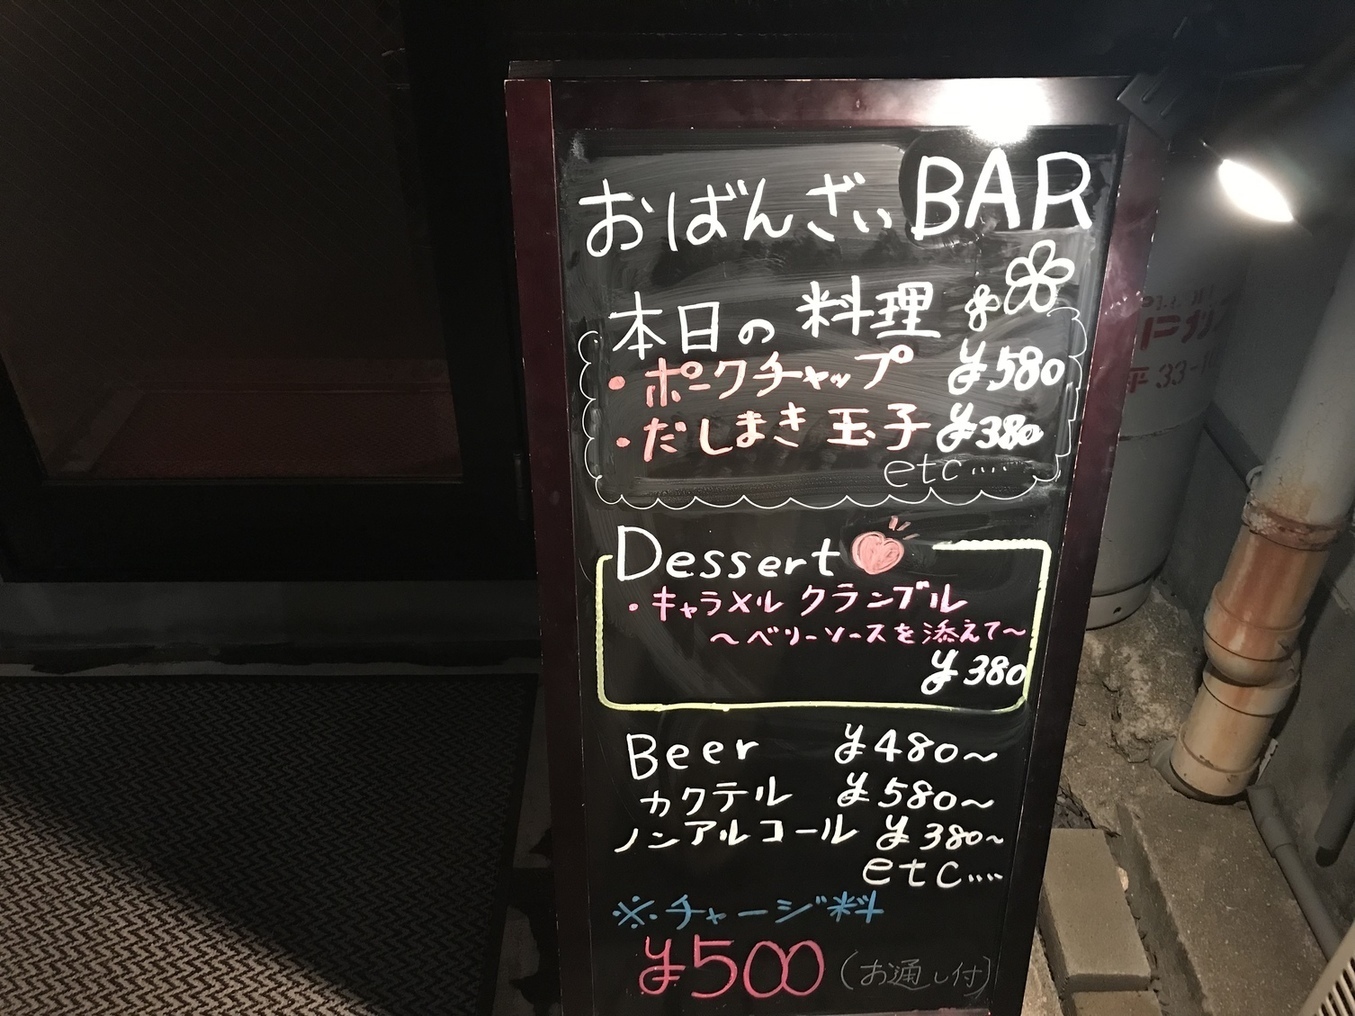 おばんざいBAR
本日の料理
・ポークチャップ ¥580
・だしまき玉子 ¥380
etc....
Dessert
・キャラメルクランブル
〜ベリーソースを添えて〜
¥380
Beer ¥480〜
カクテル ¥580〜
ノンアルコール ¥380〜
etc....
※チャージ料
¥500 (お通し付)